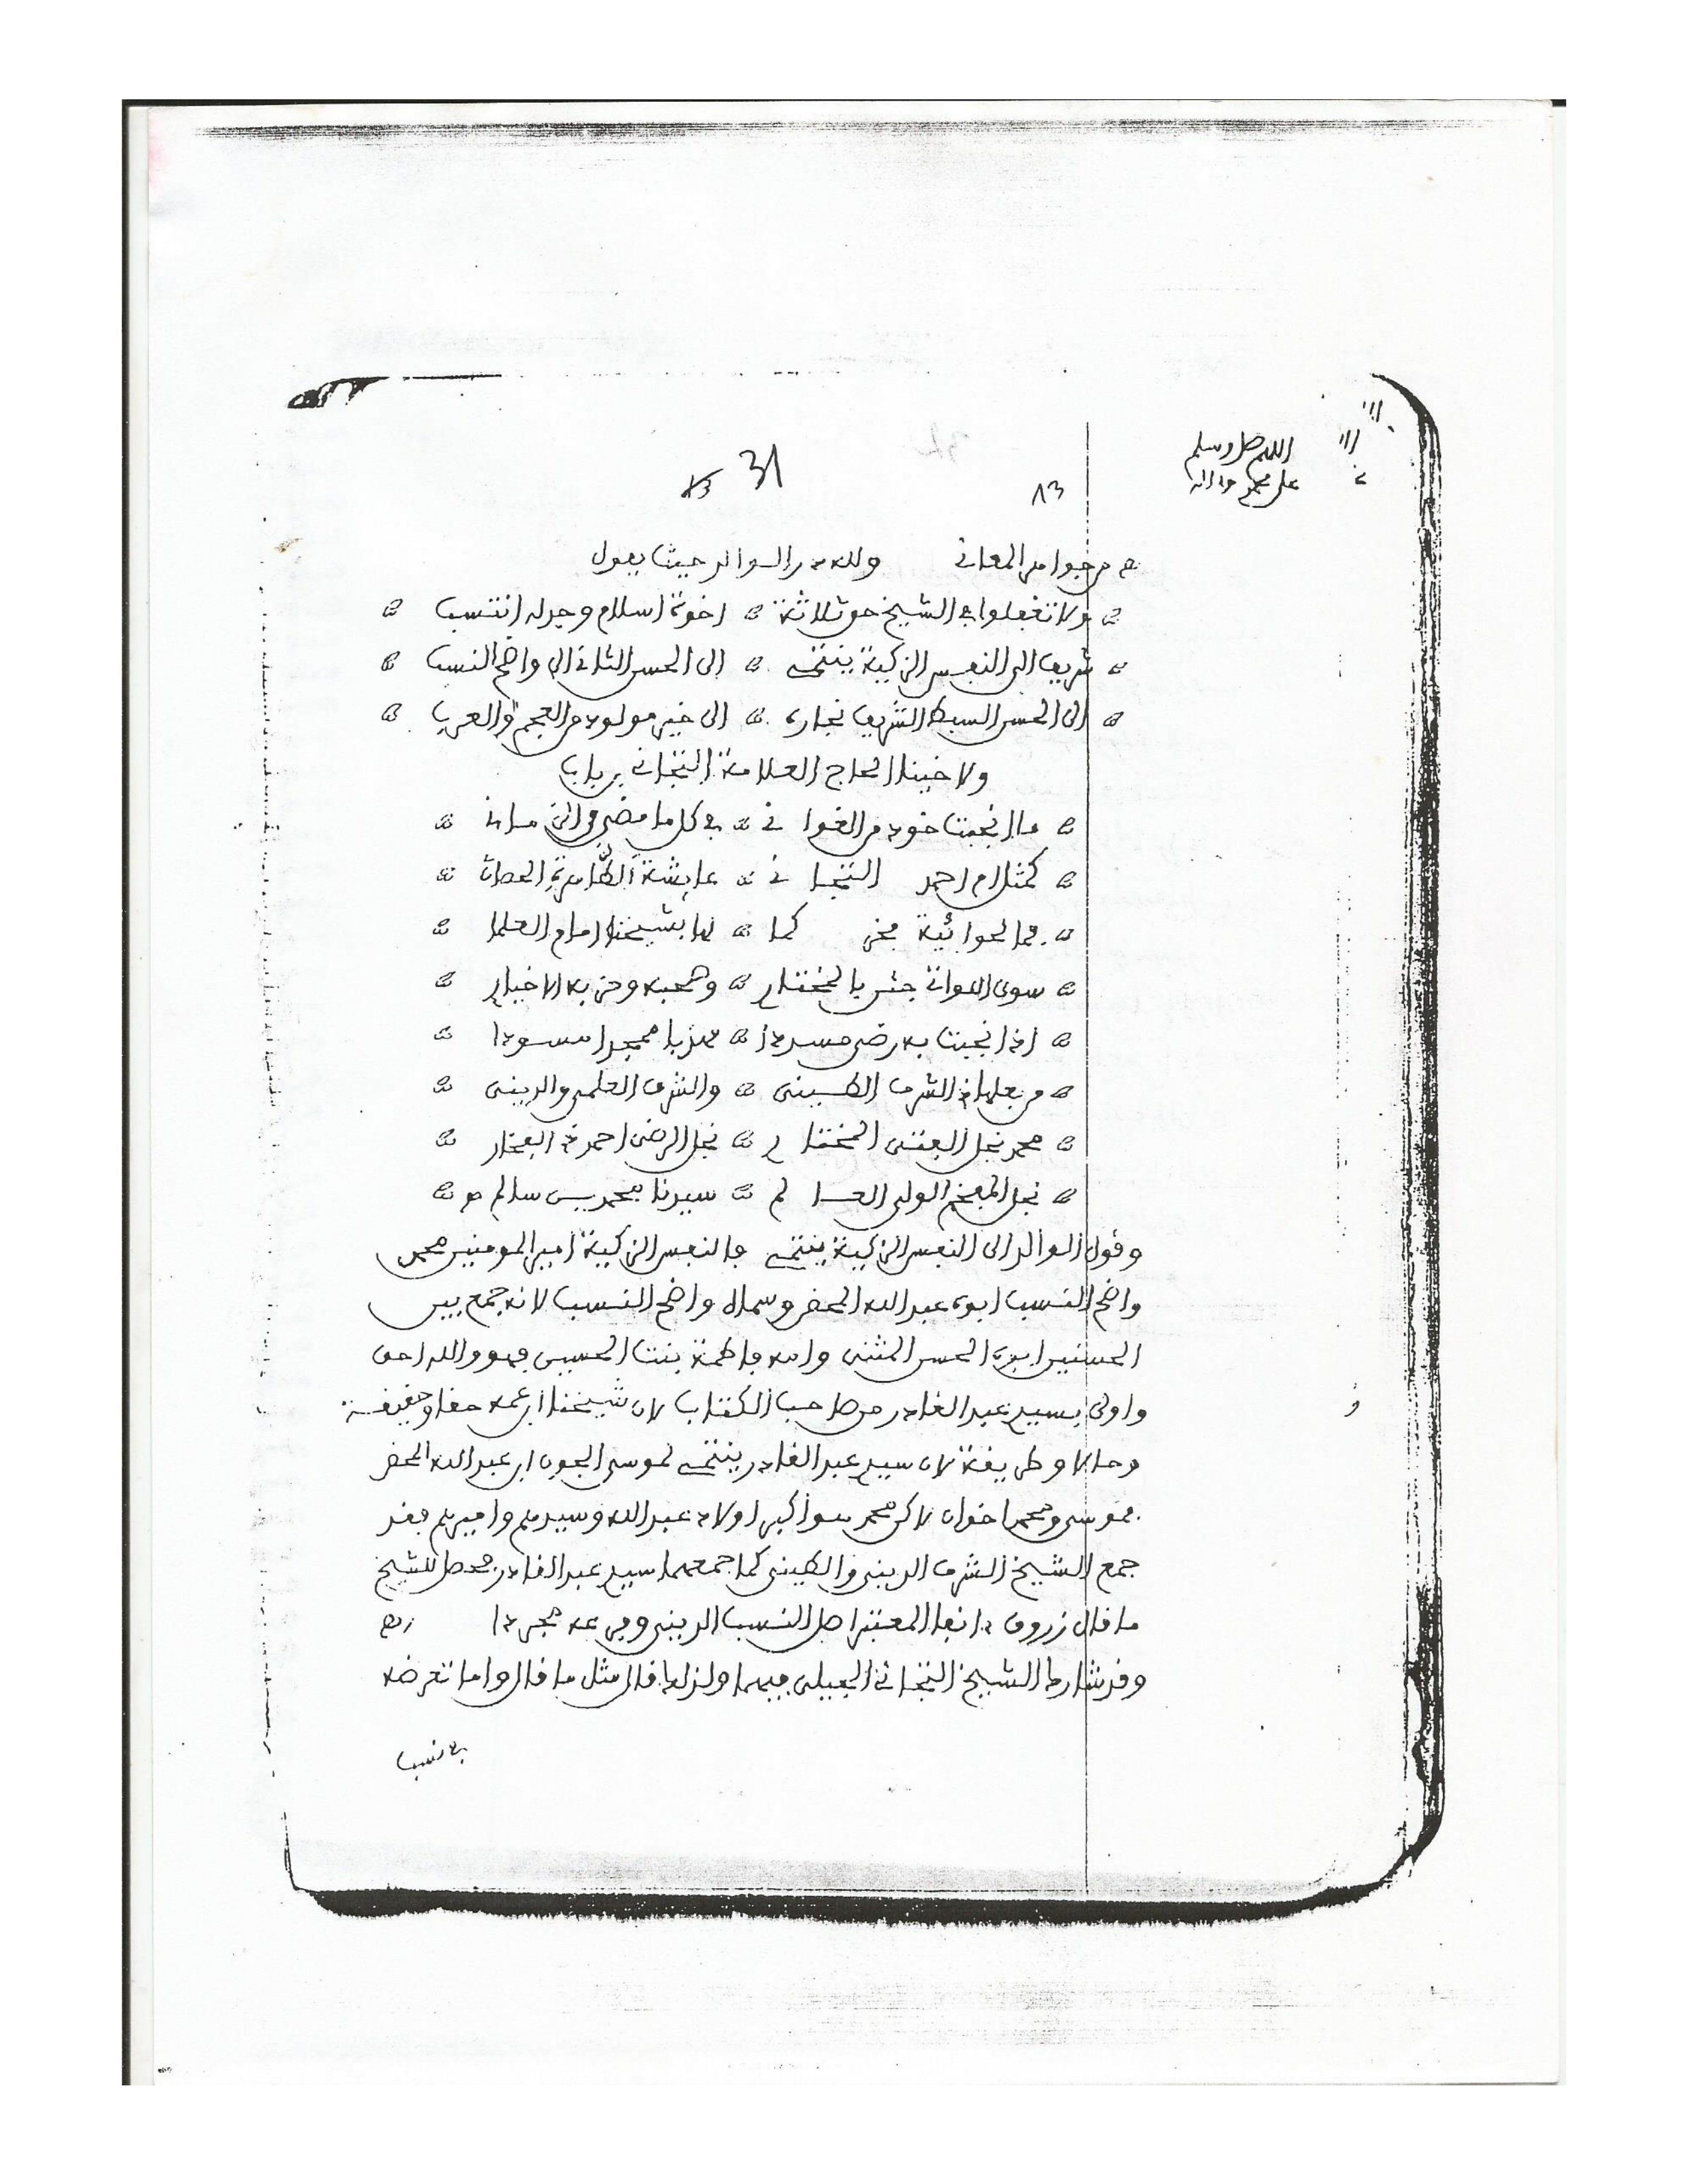 اللهم صل وسلم
على محمد وءاله
31
13
13
من جواهر المعاني ولله در الوالد حيث يقول
ولا تغفلوا في الشيخ حق ثلاثة اخوة اسلام وجد له انتسب
شريف الى النفس الزكية ينتمي الى الحسن الثاني الى واضح النسب
الى الحسن السبط الشريف نجاره الى خير مولود من العجم والعرب
ولاخينا الحاج العلامة التجاني بن باب
ما انجبت خود من الغواني في كل ما مضى من
كمثل ام احمد التجاني عايشة الطاهرة الحصان
كما لها بشيخنا امام العلما
سوى اللواتي جئن بالمختار وصحبه وحزبه الاخيار
اذ انجبت به رضى مسددا مهذبا ممجدا مسودا
من بعلها ذي الشرف الطيني والشرف العلمي والديني
محمد نجل الفتى المختار نجل الرضى احمد ذي الفخار
نجل المفخم الولي العالم سيدنا محمد بن سالم
وقول الوالد الى النفس الزكية ينتمي فالنفس الزكية امير المومنين محمد
واضح النسب ابوه عبد الله المحض وسماه واضح النسب لانه جمع بين
الحسنين ابوه الحسن المثنى وامه فاطمة بنت الحسين فهو والله احق
واولى بسيد عبد القادر من صاحب الكتاب لان شيخنا ابن عمه حقا وحقيقة
وحالا وطريقة لان سيد عبد القادر ينتمي لموسى الجون ابن عبد الله المحض
فموسى ومحمد اخوان لاكن محمد هو اكبر اولاد عبد الله وسيدهم واميرهم فقد
جمع الشيخ الشرف الديني والطيني كما جمعهما سيد عبد القادر فحصل للشيخ
ما قال زروق ءانفا المعتبر اصل النسب الديني وفرعه مجردا
وقد شارك الشيخ التجاني الجيلي فيهما ولذلك قال مثل ما قال واما تعرضه
في نسب